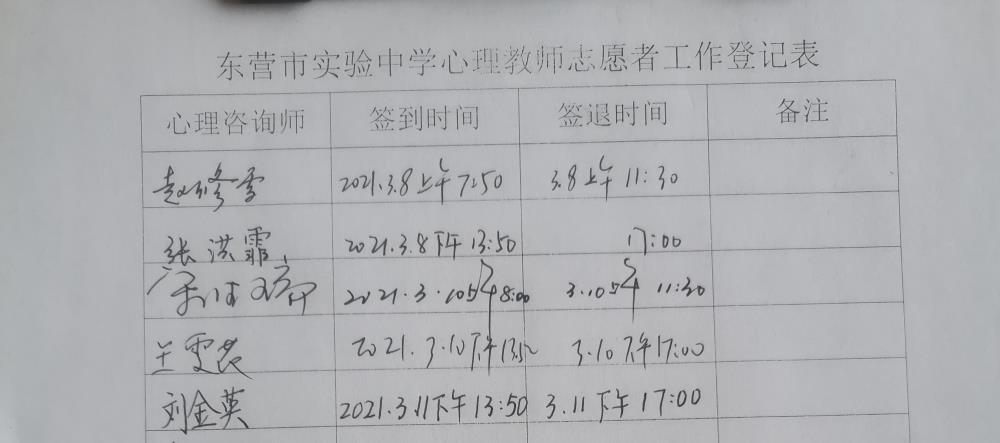 东营市实验中学心理教师志愿者工作登记表
心理咨询师 签到时间 签退时间 备注
赵修雪 2021.3.8上午7:50 3.8上午11:30
张洪霏 2021.3.8下午13:50 17:00
2021.3.10上午8:00 3.10上午11:30
王雯茗 2021.3.10下午13:50 3.10下午17:00
刘金英 2021.3.11下午13:50 3.11下午17:00